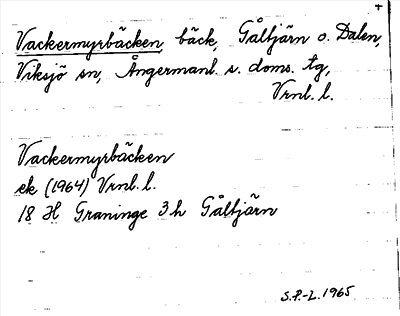 +
Vackermyrbäcken, bäck, Gåltjärn o. Dalen,
Viksjö sn, Ångermanl. s. doms. tg,
Vrnl. l.
Vackermyrbäcken
ek (1964) Vrnl. l.
18 H Graninge 3 h Gåltjärn
S.P.-L. 1965